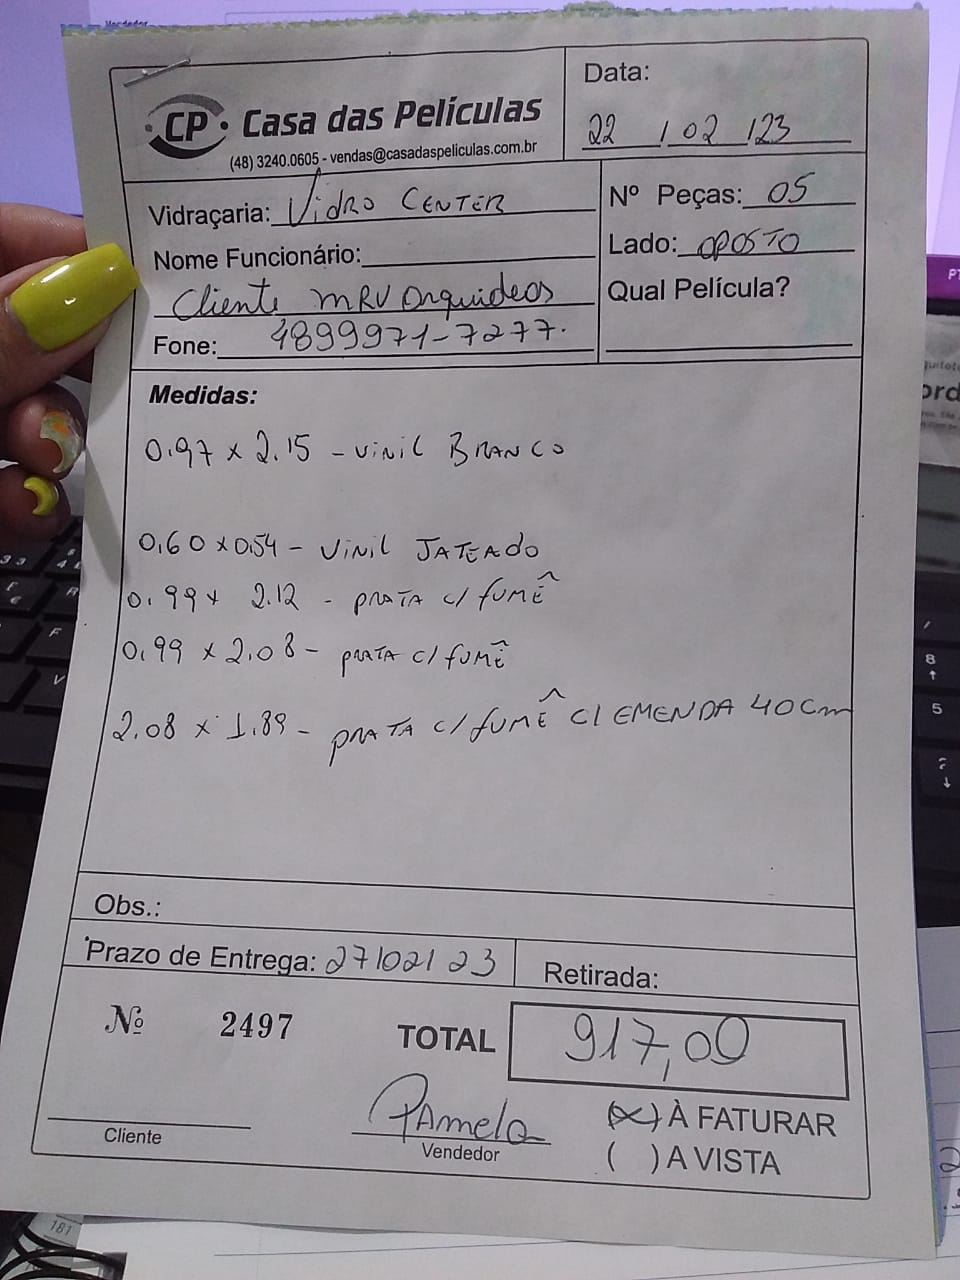 Vendedor
CP Casa das Películas
(48) 3240.0605 - vendas@casadaspeliculas.com.br
Data:
22 / 02 / 23
Vidraçaria: Vidro Center
Nome Funcionário:
Cliente MRV Orquideas
Fone: 4899971-7277.
Nº Peças: 05
Lado: OPOSTO
Qual Película?
Medidas:
0.97 x 2.15 - Vinil BRANCO
0.60 x 0.54 - Vinil JATEADO
0.99 x 2.12 - PRATA C/ FUMÊ
0.99 x 2.08 - PRATA C/ FUMÊ
2.08 x 1.89 - PRATA C/ FUMÊ C/ EMENDA 40cm
Obs.:
Prazo de Entrega: 27/02/23
Retirada:
Nº 2497
TOTAL 917,00
Cliente
Pamela
Vendedor
(x) À FATURAR
( ) A VISTA
181